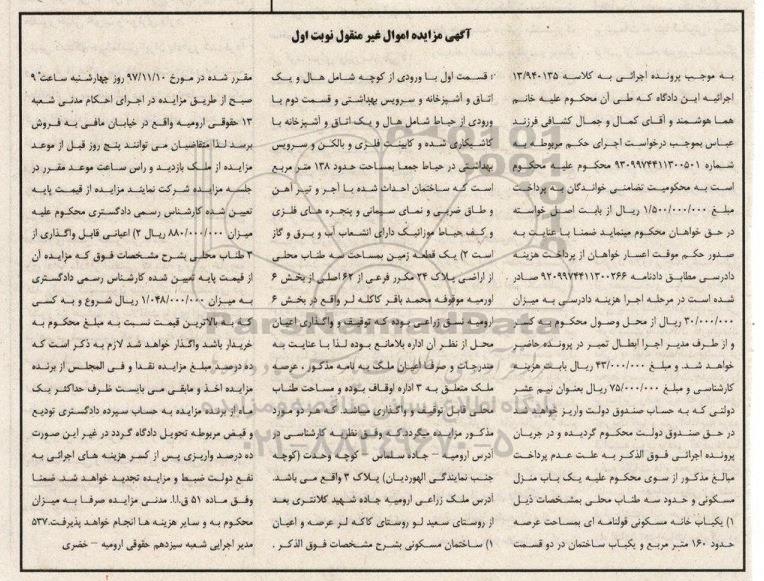 آگهی مزایده اموال غیر منقول نوبت اول
به موجب پرونده اجرائی به کلاسه ۱۳/۹۴۰۱۳۵
اجرائیه این دادگاه که طی آن محکوم علیه خانم
هما هوشمند و آقای کمال و جمال کشافی فرزند
عباس بموجب درخواست اجرای حکم مربوطه به
شماره ۹۳۰۹۹۷۴۴۱۱۳۰۰۵۰۱ محکوم علیه محکوم
است به محکومیت تضامنی خواندگان به پرداخت
مبلغ ۱/۵۰۰/۰۰۰/۰۰۰ ریال از بابت اصل خواسته
در حق خواهان محکوم مینماید ضمنا با عنایت به
صدور حکم موقت اعسار خواهان از پرداخت هزینه
دادرسی مطابق دادنامه ۹۲۰۹۹۷۴۴۱۱۳۰۰۲۶۶ صادر
شده است در مرحله اجرا هزینه دادرسی به میزان
۳۰/۰۰۰/۰۰۰ ریال از محل وصول محکوم به کسر
و از طرف مدیر اجرا ابطال تمبر در پرونده حاضر
خواهد شد. و مبلغ ۴۳/۰۰۰/۰۰۰ ریال بابت هزینه
کارشناسی و مبلغ ۷۵/۰۰۰/۰۰۰ ریال بعنوان نیم عشر
دولتی که به حساب صندوق دولت واریز خواهد شد
در حق صندوق دولت محکوم گردیده و در جریان
پرونده اجرائی فوق الذکر به علت عدم پرداخت
مبالغ مذکور از سوی محکوم علیه یک باب منزل
مسکونی و حدود سه طناب محلی بمشخصات ذیل
۱) یکباب خانه مسکونی قولنامه ای بمساحت عرصه
حدود ۱۶۰ متر مربع و یکباب ساختمان در دو قسمت
: قسمت اول با ورودی از کوچه شامل هال و یک
اتاق و آشپزخانه و سرویس بهداشتی و قسمت دوم با
ورودی از حیاط شامل هال و یک اتاق و آشپزخانه با
کاشیکاری شده و کابینت فلزی و بالکن و سرویس
بهداشتی در حیاط جمعا بمساحت حدود ۱۳۸ متر مربع
است که ساختمان احداث شده با آجر و تیر آهن
و طاق ضربی و نمای سیمانی و پنجره های فلزی
و کف حیاط موزائیک دارای انشعاب آب و برق و گاز
است ۲) یک قطعه زمین بمساحت سه طناب محلی
از اراضی پلاک ۲۴ مکرر فرعی از ۶۲ اصلی از بخش ۶
اورمیه موقوفه محمد باقر کاکله لر واقع در بخش ۶
ارومیه نسق زراعی بوده که توقیف و واگذاری اعیان
محل از نظر آن اداره بلامانع بوده لذا با عنایت به
مندرجات و صرفا اعیان ملک به نامه مذکور، عرصه
ملک متعلق به ۳ اداره اوقاف بوده و مساحت طناب
محلی قابل توقیف و واگذاری میباشد که هر دو مورد
مذکور مزایده میگردد که مورد نظریه کارشناسی در
آدرس ارومیه - جاده سلماس - کوچه وحدت (کوچه
جنب نمایندگی الهوردیان) پلاک ۳ واقع می باشد.
آدرس ملک زراعی ارومیه جاده شهید کلانتری بعد
از روستای سعید لو روستای کاکه لر عرصه و اعیان
۱) ساختمان مسکونی بشرح مشخصات فوق الذکر .
مقرر شده در مورخ ۹۷/۱۱/۱۰ روز چهارشنبه ساعت ۹
صبح از طریق مزایده در اجرای احکام مدنی شعبه
۱۳ حقوقی ارومیه واقع در خیابان مافی به فروش
برسد لذا متقاضیان می توانند پنج روز قبل از موعد
مزایده از ملک بازدید و راس ساعت موعد مقرر در
جلسه مزایده شرکت نمایند مزایده از قیمت پایه
تعیین شده کارشناس رسمی دادگستری محکوم علیه
میزان ۸۸۰/۰۰۰/۰۰۰ ریال ۲) اعیانی قابل واگذاری از
۳ طناب محلی بشرح مشخصات فوق که مزایده آن
از قیمت پایه تعیین شده کارشناس رسمی دادگستری
به میزان ۱/۰۴۸/۰۰۰/۰۰۰ ریال شروع و به کسی
که به بالاترین قیمت نسبت به مبلغ محکوم به
خریدار باشد واگذار خواهد شد لازم به ذکر است که
ده درصد مبلغ مزایده نقدا و فی المجلس از برنده
مزایده اخذ و مابقی می بایست ظرف حداکثر یک
ماه از برنده مزایده به حساب سپرده دادگستری تودیع
و قبض مربوطه تحویل دادگاه گردد در غیر این صورت
ده درصد واریزی پس از کسر هزینه های اجرائی به
نفع دولت ضبط و مزایده تجدید خواهد شد. ضمنا
وفق ماده ۵۱ ق.ا.ا. مدنی مزایده صرفا به میزان
محکوم به و سایر هزینه ها انجام خواهد پذیرفت.۵۳۷
مدیر اجرایی شعبه سیزدهم حقوقی ارومیه - خضری
ParsNamadData
پایگاه اطلاع رسانی مناقصه و مزایده
۰۲۱-۸۸۳۴۹۶۷۰-۵